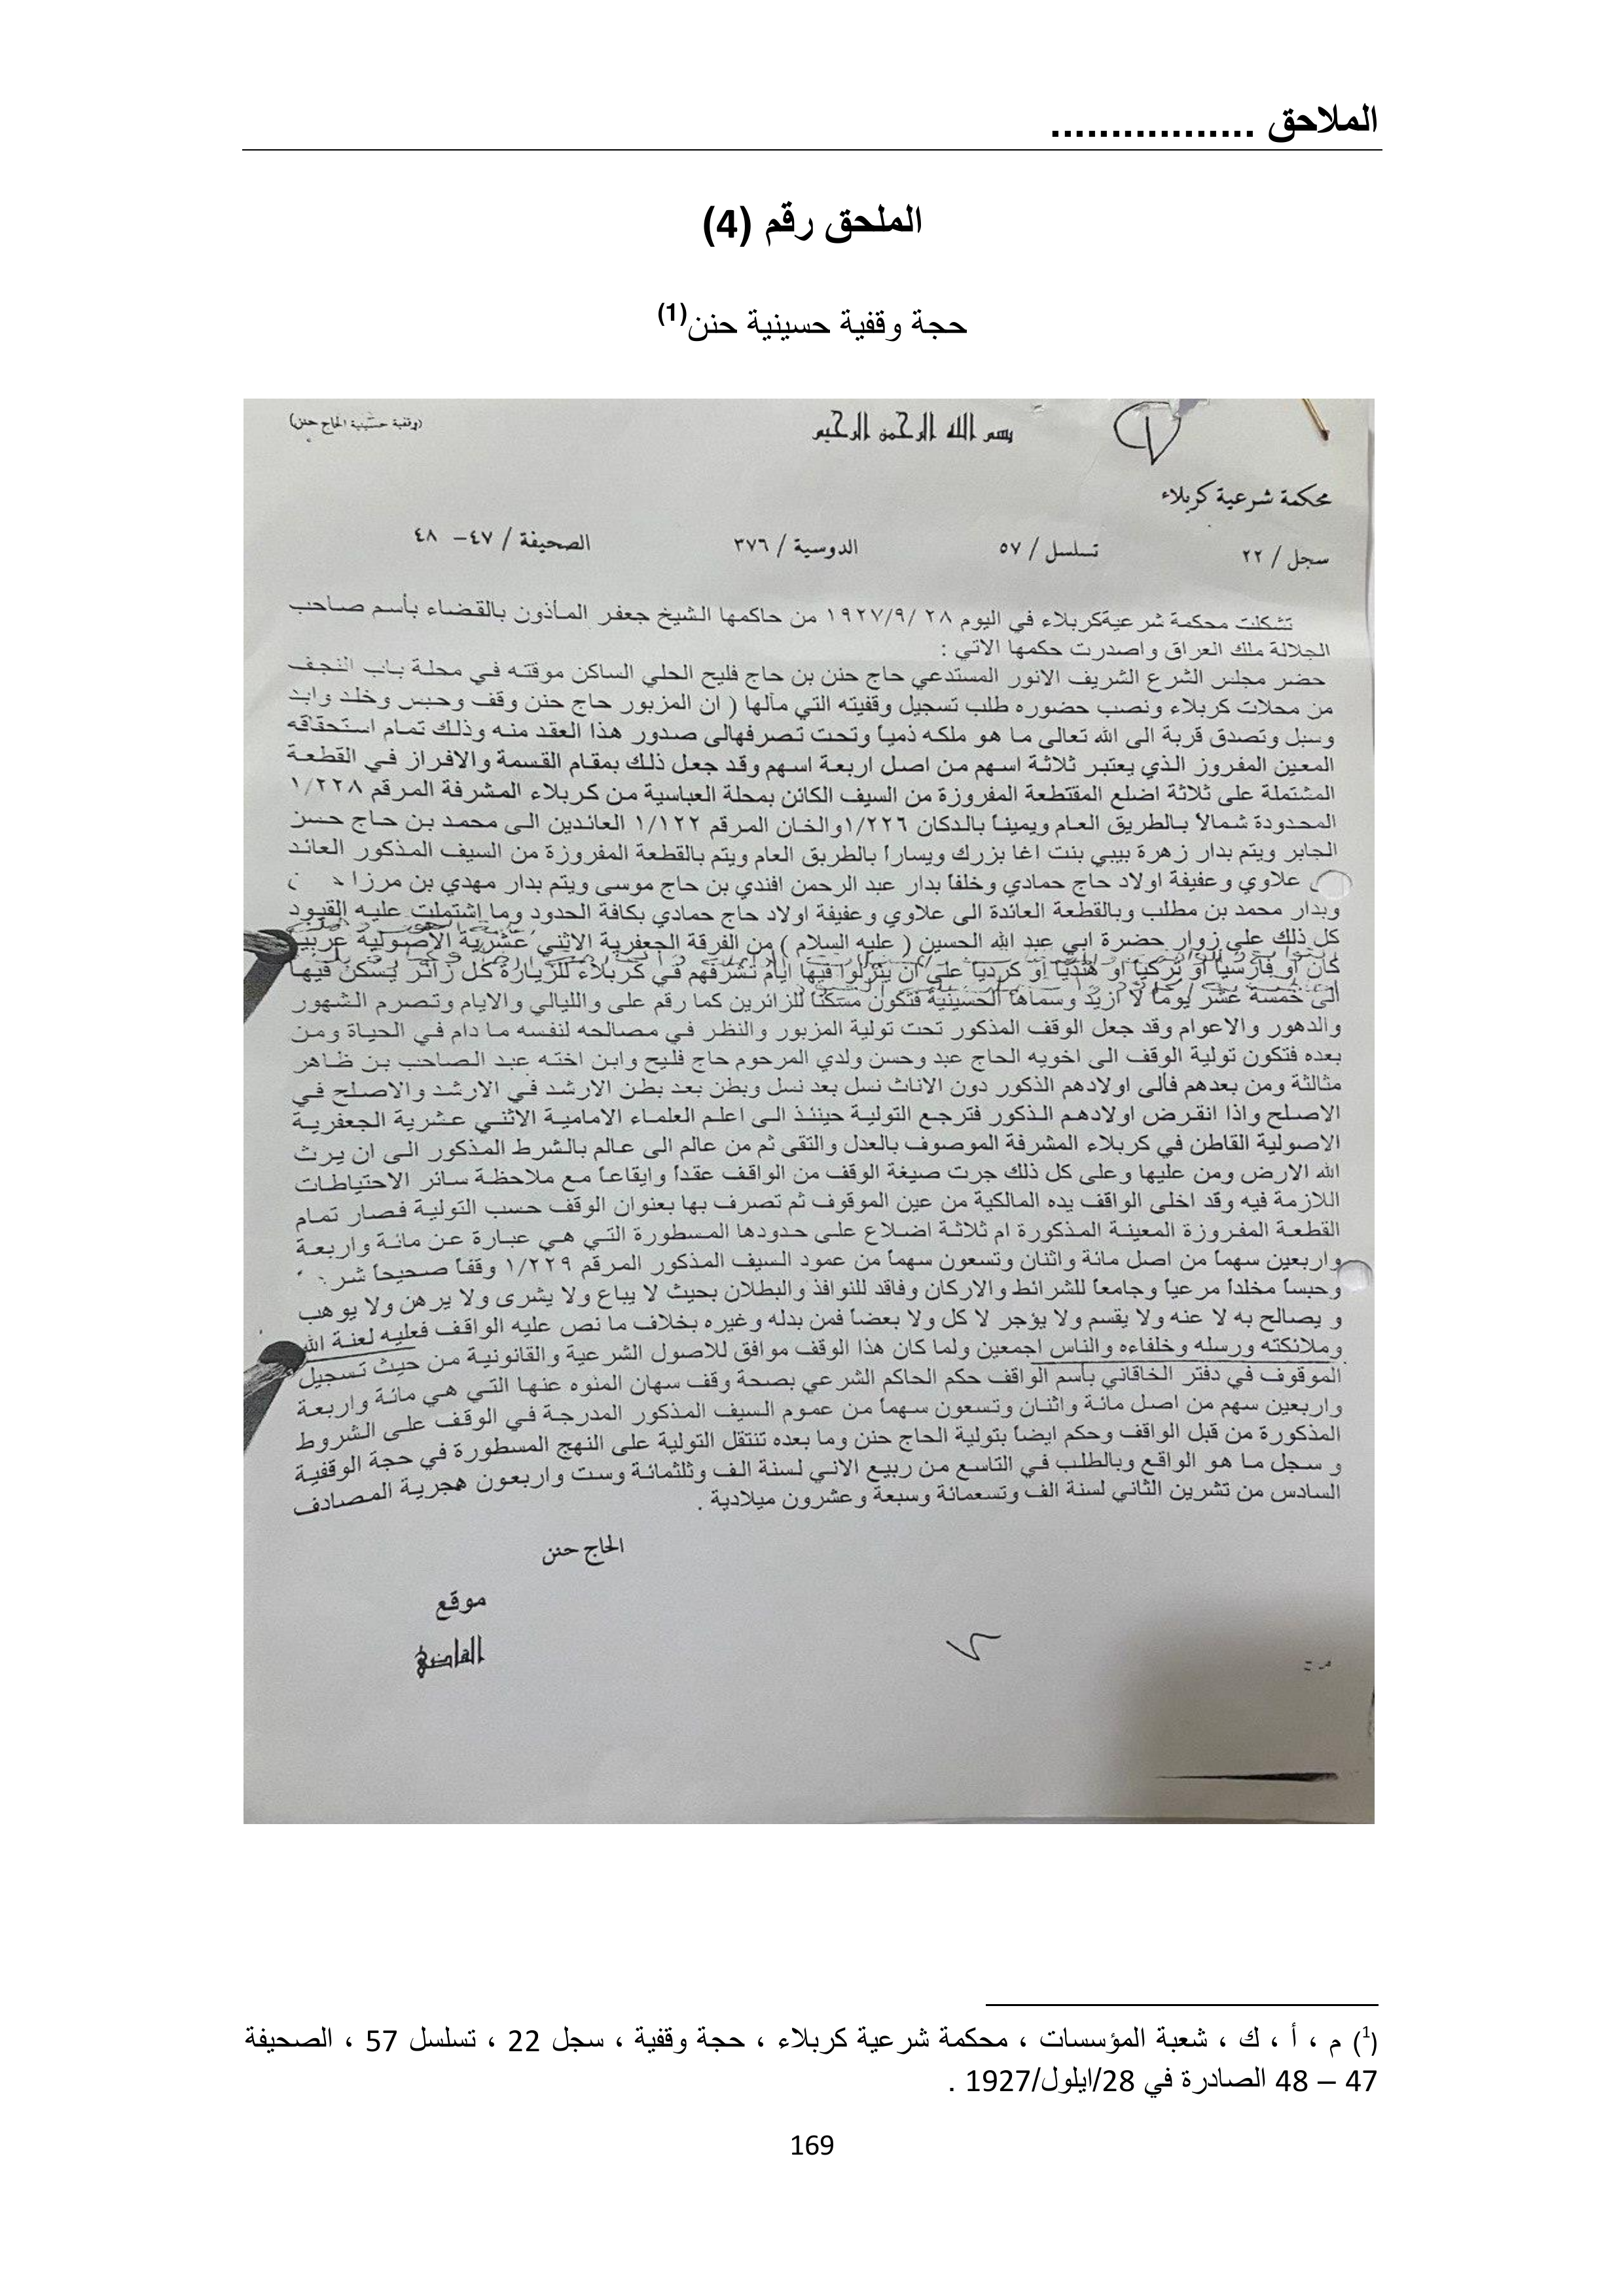 الملاحق .................
الملحق رقم (4)
حجة وقفية حسينية حنن(1)
بسم الله الرحمن الرحيم
(وقفية حسينية الحاج حنن)
محكمة شرعية كربلاء
سجل / ٢٢ تسلسل / ٥٧ الدوسية / ٣٧٦ الصحيفة / ٤٧ – ٤٨
تشكلت محكمة شرعيةكربلاء في اليوم ٢٨ /١٩٢٧/٩ من حاكمها الشيخ جعفر المأذون بالقضاء بأسم صاحب
الجلالة ملك العراق واصدرت حكمها الاتي :
حضر مجلس الشرع الشريف الانور المستدعي حاج حنن بن حاج فليح الحلي الساكن موقته في محلة باب النجف
من محلات كربلاء ونصب حضوره طلب تسجيل وقفيته التي مآلها ( ان المزبور حاج حنن وقف وحبس وخلد وابد
وسبل وتصدق قربة الى الله تعالى ما هو ملكه ذمياً وتحت تصرفهالى صدور هذا العقد منه وذلك تمام استحقاقه
المعين المفروز الذي يعتبر ثلاثة اسهم من اصل اربعة اسهم وقد جعل ذلك بمقام القسمة والافراز في القطعة
المشتملة على ثلاثة اضلع المقتطعة المفروزة من السيف الكائن بمحلة العباسية من كربلاء المشرفة المرقم ١/٢٢٨
المحدودة شمالاً بالطريق العام ويميناً بالدكان ١/٢٢٦والخان المرقم ١/١٢٢ العائدين الى محمد بن حاج حسن
الجابر ويتم بدار زهرة بيبي بنت اغا بزرك ويساراً بالطريق العام ويتم بالقطعة المفروزة من السيف المذكور العائد
علاوي وعفيفة اولاد حاج حمادي وخلفاً بدار عبد الرحمن افندي بن حاج موسى ويتم بدار مهدي بن مرزا
وبدار محمد بن مطلب وبالقطعة العائدة الى علاوي وعفيفة اولاد حاج حمادي بكافة الحدود وما اشتملت عليه القيود
كل ذلك على زوار حضرة ابي عبد الله الحسين ( عليه السلام ) من الفرقة الجعفرية الاثني عشرية الاصولية عربياً
كان أو فارسياً أو تركياً او هندياً او كردياً على أن ينزلوا فيها ايام تشرفهم في كربلاء للزيارة كل زائر يسكن فيها
الى خمسة عشر يوماً لا ازيد وسماها الحسينية فتكون مسكناً للزائرين كما رقم على والليالي والايام وتصرم الشهور
والدهور والاعوام وقد جعل الوقف المذكور تحت تولية المزبور والنظر في مصالحه لنفسه ما دام في الحياة ومن
بعده فتكون تولية الوقف الى اخويه الحاج عبد وحسن ولدي المرحوم حاج فليح وابن اخته عبد الصاحب بن ظاهر
مثالثة ومن بعدهم فألى اولادهم الذكور دون الاناث نسل بعد نسل وبطن بعد بطن الارشد في الارشد والاصلح في
الاصلح واذا انقرض اولادهم الذكور فترجع التولية حينئذ الى اعلم العلماء الامامية الاثني عشرية الجعفرية
الاصولية القاطن في كربلاء المشرفة الموصوف بالعدل والتقى ثم من عالم الى عالم بالشرط المذكور الى ان يرث
الله الارض ومن عليها وعلى كل ذلك جرت صيغة الوقف من الواقف عقداً وايقاعاً مع ملاحظة سائر الاحتياطات
اللازمة فيه وقد اخلى الواقف يده المالكية من عين الموقوف ثم تصرف بها بعنوان الوقف حسب التولية فصار تمام
القطعة المفروزة المعينة المذكورة ام ثلاثة اضلاع على حدودها المسطورة التي هي عبارة عن مائة واربعة
واربعين سهماً من اصل مائة واثنان وتسعون سهماً من عمود السيف المذكور المرقم ١/٢٢٩ وقفاً صحيحاً
وحبساً مخلداً مرعياً وجامعاً للشرائط والاركان وفاقد للنوافذ والبطلان بحيث لا يباع ولا يشرى ولا يرهن ولا يوهب
و يصالح به لا عنه ولا يقسم ولا يؤجر لا كل ولا بعضاً فمن بدله وغيره بخلاف ما نص عليه الواقف فعليه لعنة الله
وملائكته ورسله وخلفاءه والناس اجمعين ولما كان هذا الوقف موافق للاصول الشرعية والقانونية من حيث تسجيل
الموقوف في دفتر الخاقاني بأسم الواقف حكم الحاكم الشرعي بصحة وقف سهان المنوه عنها التي هي مائة واربعة
واربعين سهم من اصل مائة واثنان وتسعون سهماً من عموم السيف المذكور المدرجة في الوقف على الشروط
المذكورة من قبل الواقف وحكم ايضاً بتولية الحاج حنن وما بعده تنتقل التولية على النهج المسطورة في حجة الوقفية
و سجل ما هو الواقع وبالطلب في التاسع من ربيع الاني لسنة الف وثلثمائة وست واربعون هجرية المصادف
السادس من تشرين الثاني لسنة الف وتسعمائة وسبعة وعشرون ميلادية .
الحاج حنن
موقع
القاضي
(1) م ، أ ، ك ، شعبة المؤسسات ، محكمة شرعية كربلاء ، حجة وقفية ، سجل 22 ، تسلسل 57 ، الصحيفة
47 – 48 الصادرة في 28/ايلول/1927 .
169